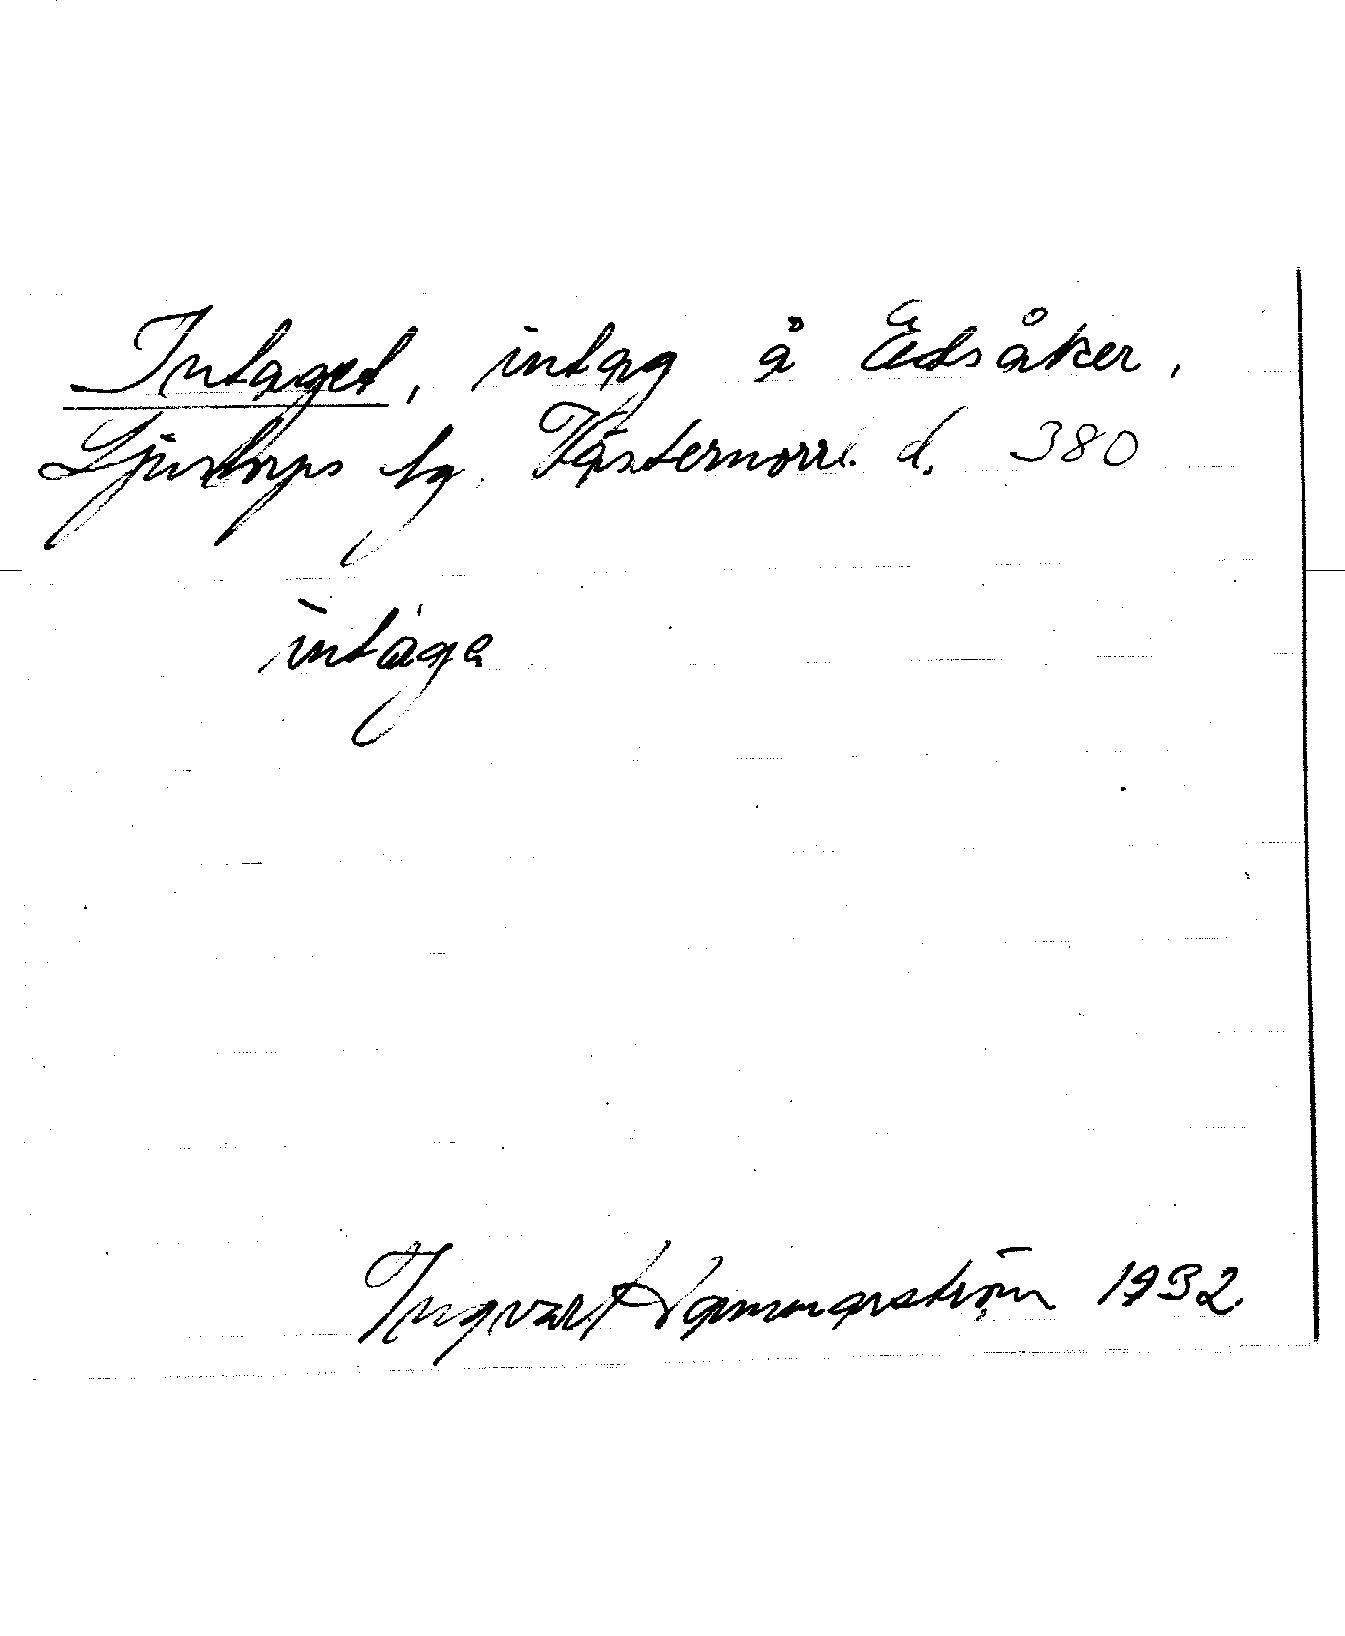 Intaget, intag å Edsåker,
Ljustorps tg. Västernorrl. d. 380
intàga
Ingvar Hammarström 1932.